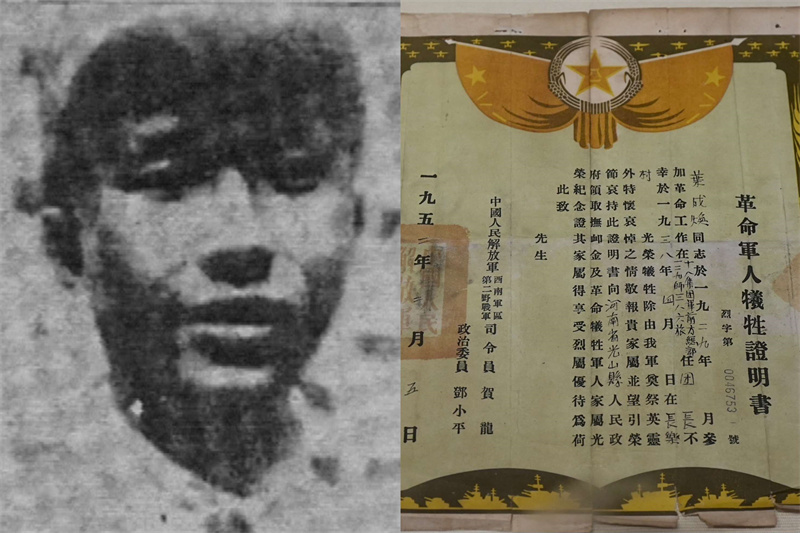 革命軍人犧牲證明書
烈字第 0046753 號
葉成煥同志於一九二九年 月參
加革命工作在十八集團軍前方總部一二九師三八六旅任團長不
幸於一九三八年四月 日在長樂
村 光榮犧牲除由我軍奠祭英靈
外特懷哀悼之情敬報貴家屬並望引榮
節哀持此證明書向河南省光山縣人民政
府領取撫卹金及革命犧牲軍人家屬光
榮紀念證其家屬得享受烈屬優待爲荷
此致
先生
中國人民解放軍西南軍區第二野戰軍司令員賀龍
政治委員鄧小平
一九五二年 月五日